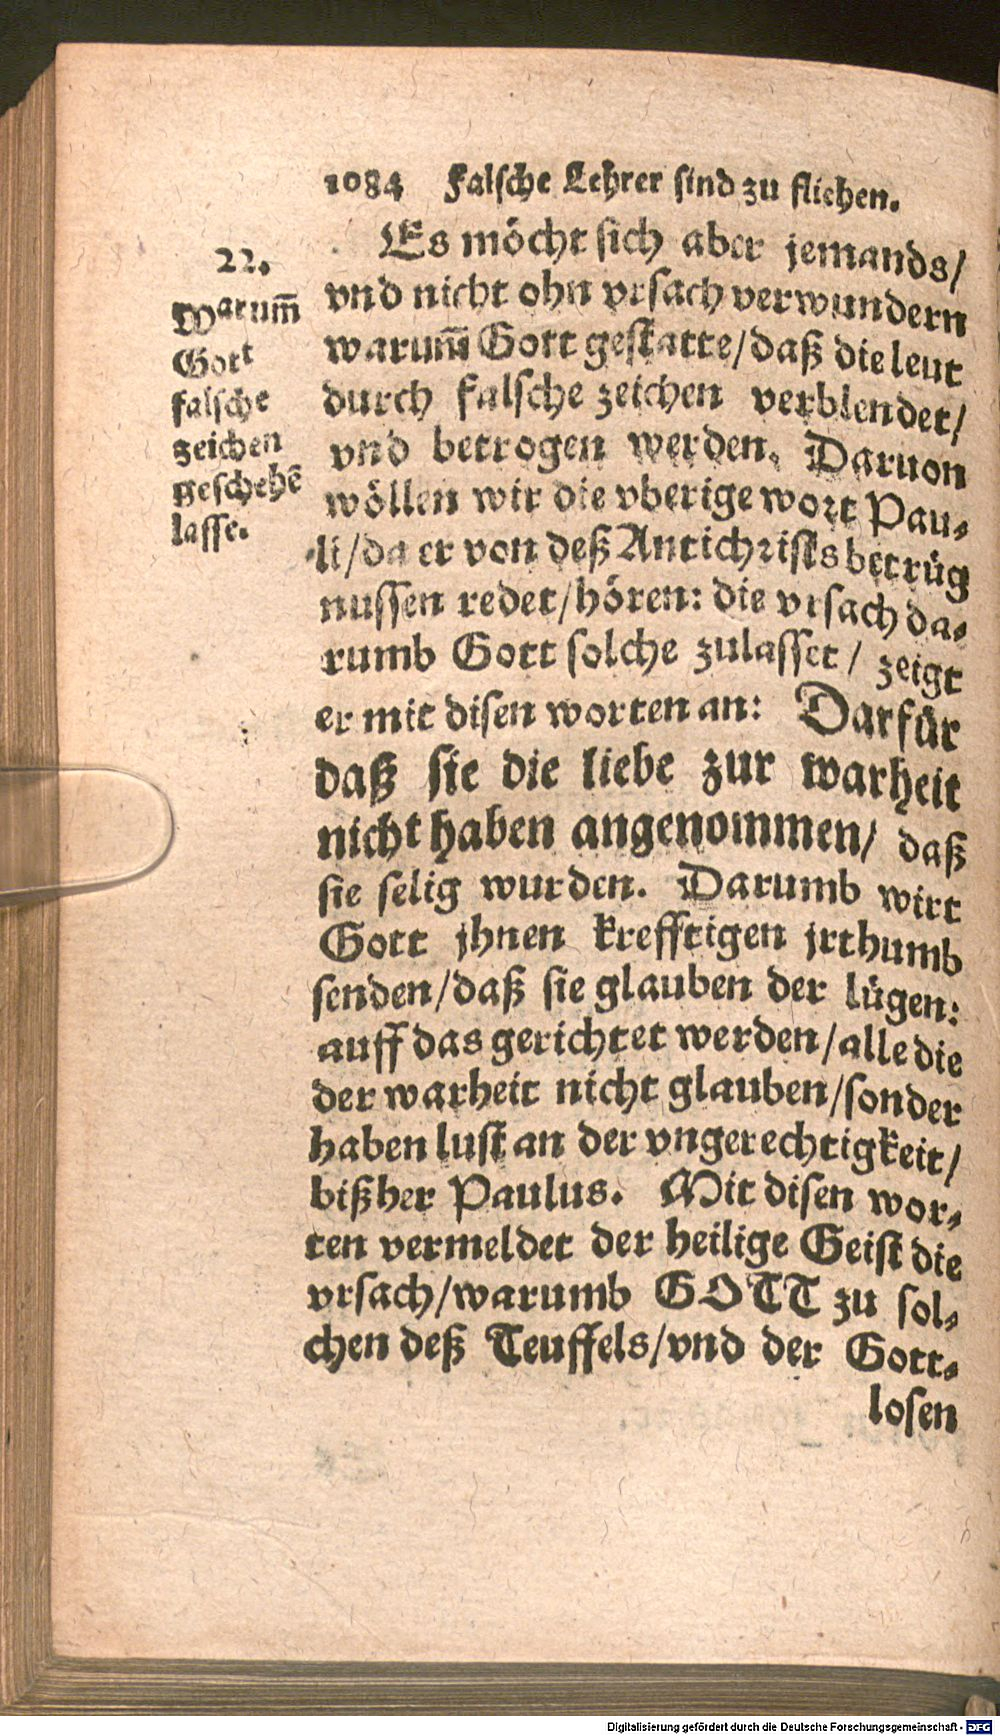 1084 Falsche Lehrer sind zu fliehen.
22.
Warum̄
Gott
falsche
zeichen
geschehē
lasse.
Es möcht sich aber jemands/
vnd nicht ohn vrsach verwundern
warum̄ Gott gestatte/daß die leut
durch falsche zeichen verblendet/
vnd betrogen werden. Daruon
wöllen wir die vberige wort Pau-
li/da er von deß Antichrists betrüg
nussen redet/hören: die vrsach da-
rumb Gott solche zulasset/ zeigt
er mit disen worten an: Darfür
daß sie die liebe zur warheit
nicht haben angenommen/ daß
sie selig wurden. Darumb wirt
Gott jhnen krefftigen jrthumb
senden/daß sie glauben der lügen:
auff das gerichtet werden/alle die
der warheit nicht glauben/sonder
haben lust an der vngerechtigkeit/
bißher Paulus. Mit disen wor-
ten vermeldet der heilige Geist die
vrsach/warumb GOTT zu sol-
chen deß Teuffels/vnd der Gott-
losen
Digitalisierung gefördert durch die Deutsche Forschungsgemeinschaft - DFG